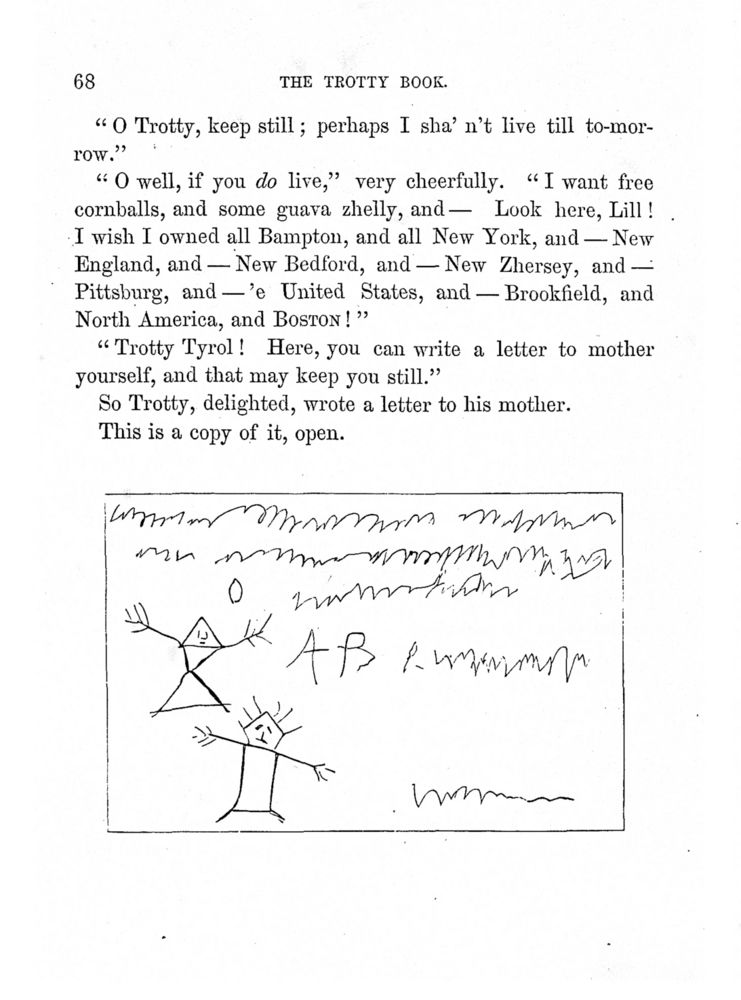 68 THE TROTTY BOOK.
“ O Trotty, keep still ; perhaps I sha’ n’t live till to-mor-
row.”
“ O well, if you do live,” very cheerfully. “ I want free
cornballs, and some guava zhelly, and — Look here, Lill !
I wish I owned all Bampton, and all New York, and — New
England, and — New Bedford, and — New Zhersey, and —
Pittsburg, and — ’e United States, and — Brookfield, and
North America, and BOSTON ! ”
“ Trotty Tyrol ! Here, you can write a letter to mother
yourself, and that may keep you still.”
So Trotty, delighted, wrote a letter to his mother.
This is a copy of it, open.
O
AB